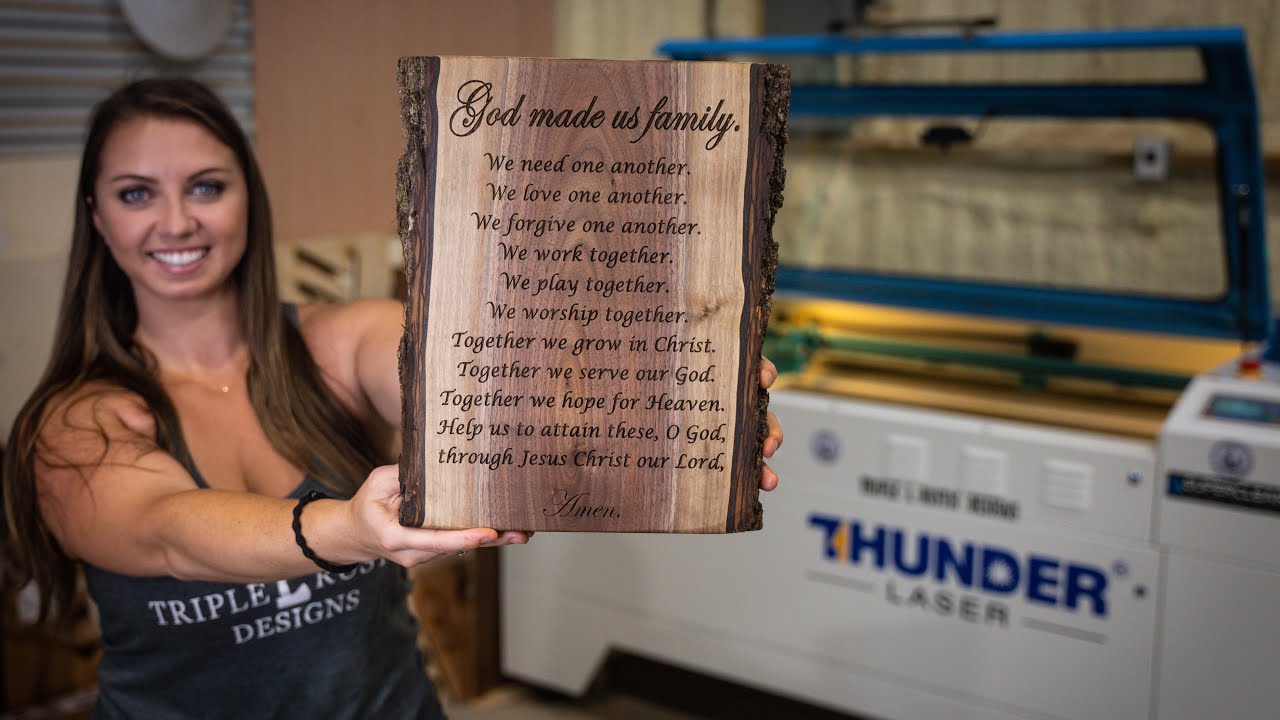 God made us family.
We need one another.
We love one another.
We forgive one another.
We work together.
We play together.
We worship together.
Together we grow in Christ.
Together we serve our God.
Together we hope for Heaven.
Help us to attain these, O God,
through Jesus Christ our Lord,
Amen.
TRIPLE
DESIGNS
THUNDER
LASER